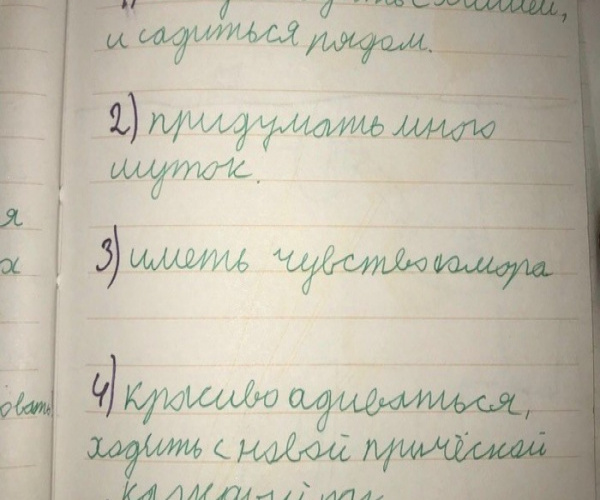 и садиться рядом.
2) придумать много
шуток.
3) иметь чувство юмора
4) красиво адиваться,
ходить с новой причёской
каждый
я
х
овать